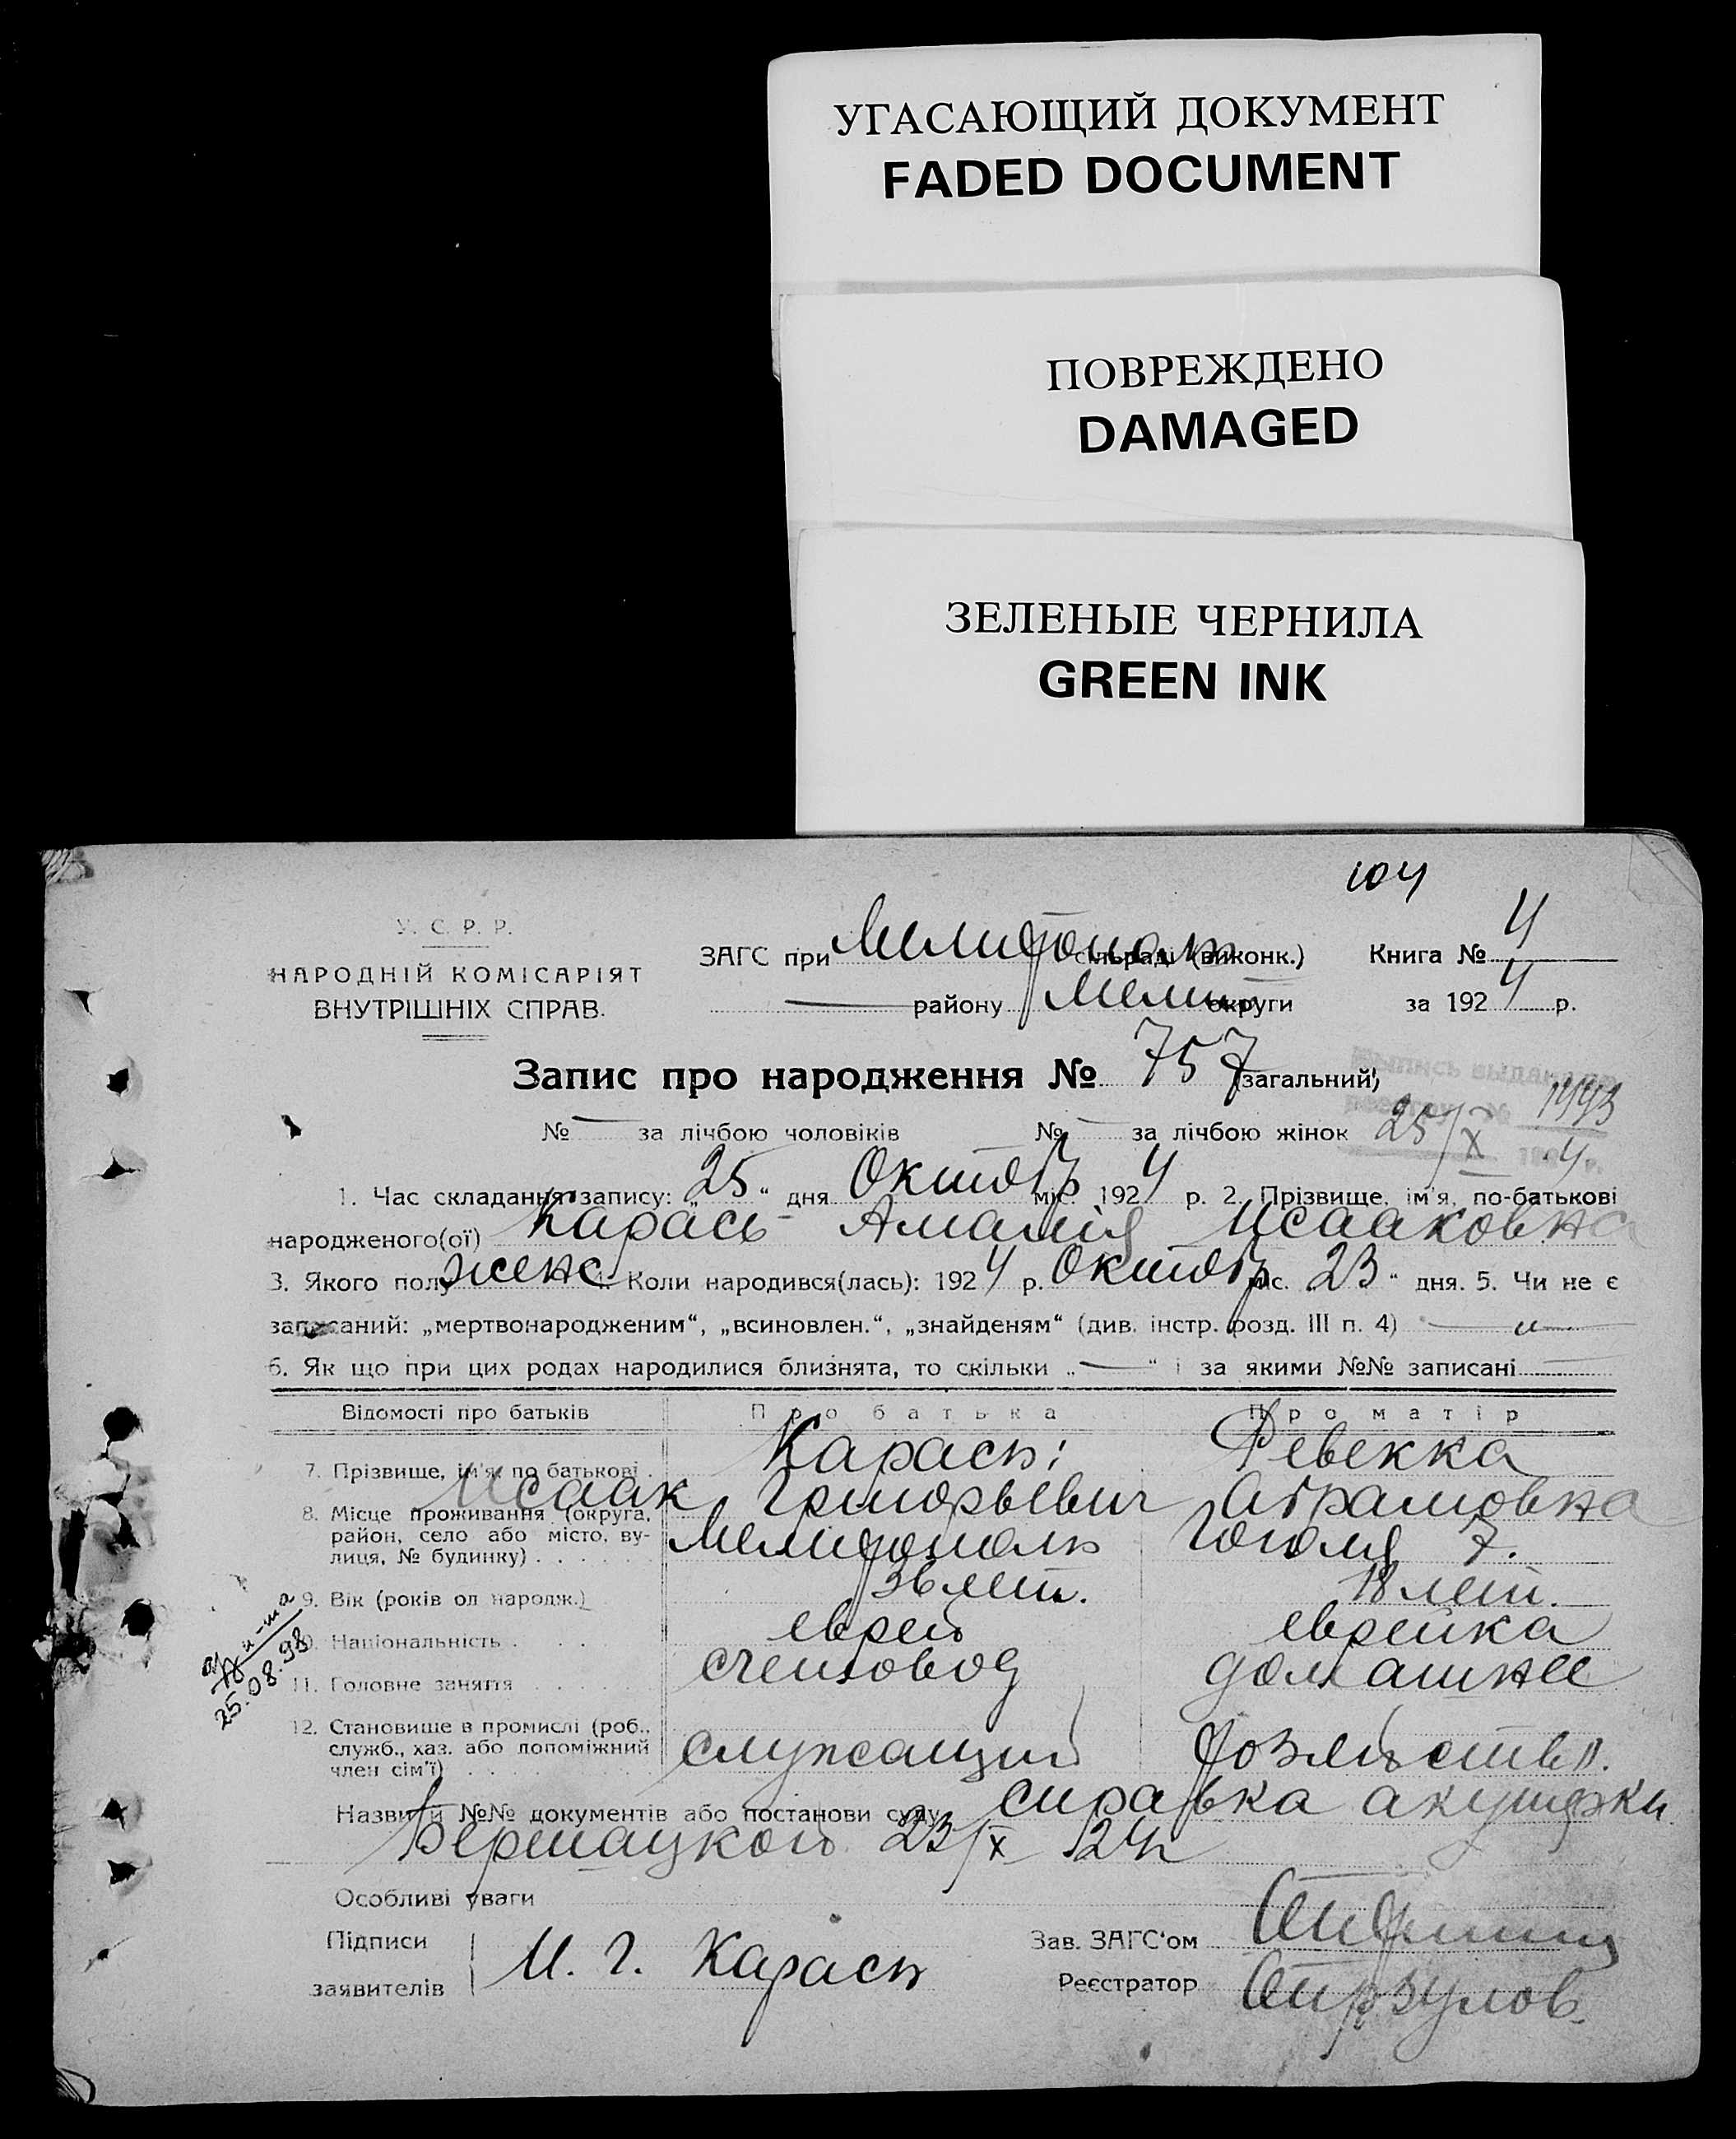 УГАСАЮЩИЙ ДОКУМЕНТ
FADED DOCUMENT
ПОВРЕЖДЕНО
DAMAGED
ЗЕЛЕНЫЕ ЧЕРНИЛА
GREEN INK
104
У. С. Р. Р.
НАРОДНІЙ КОМІСАРІЯТ
ВНУТРІШНІХ СПРАВ.
ЗАГС при Мелитополь сільраді (виконк.) Книга № 4
району Мелит округи за 1924 р.
Запис про народження № 757 (загальний)
Выпись выдана
№ 1993
№ за лічбою чоловіків № за лічбою жінок 25/X 4 р.
1. Час складання запису: „25“ дня Октябр міс. 1924 р. 2. Прізвище, ім'я, по-батькові
народженого(ої) Карась Амалія Исааковна
3. Якого полу женс 4. Коли народився(лась): 1924 р. Октябр міс. 23 “ дня. 5. Чи не є
записаний: „мертвонародженим“, „всиновлен.“, „знайденям“ (див. інстр. розд. III п. 4)
6. Як що при цих родах народилися близнята, то скільки „ “ і за якими №№ записані
Відомості про батьків Про батька Про матір
7. Прізвище, ім'я, по батькові Карась Ревекка
Исаак Григорьевич Абрамовна
8. Місце проживання (округа, район, село або місто, ву-
лиця, № будинку) Мелитополь Гоголя 7.
9. Вік (років од народж.) 36 лет. 18 лет.
10. Національність еврей еврейка
11. Головне заняття счетовод домашнее
25.08.98
12. Становище в промислі (роб.,
служб., хаз. або допоміжний
член сім'ї) служащий хозяйство.
Назви й №№ документів або постанови суду справка акушерки
23/X 24
Особливі уваги
Підписи
заявителів И. Г. Карась
Зав. ЗАГС'ом
Реєстратор